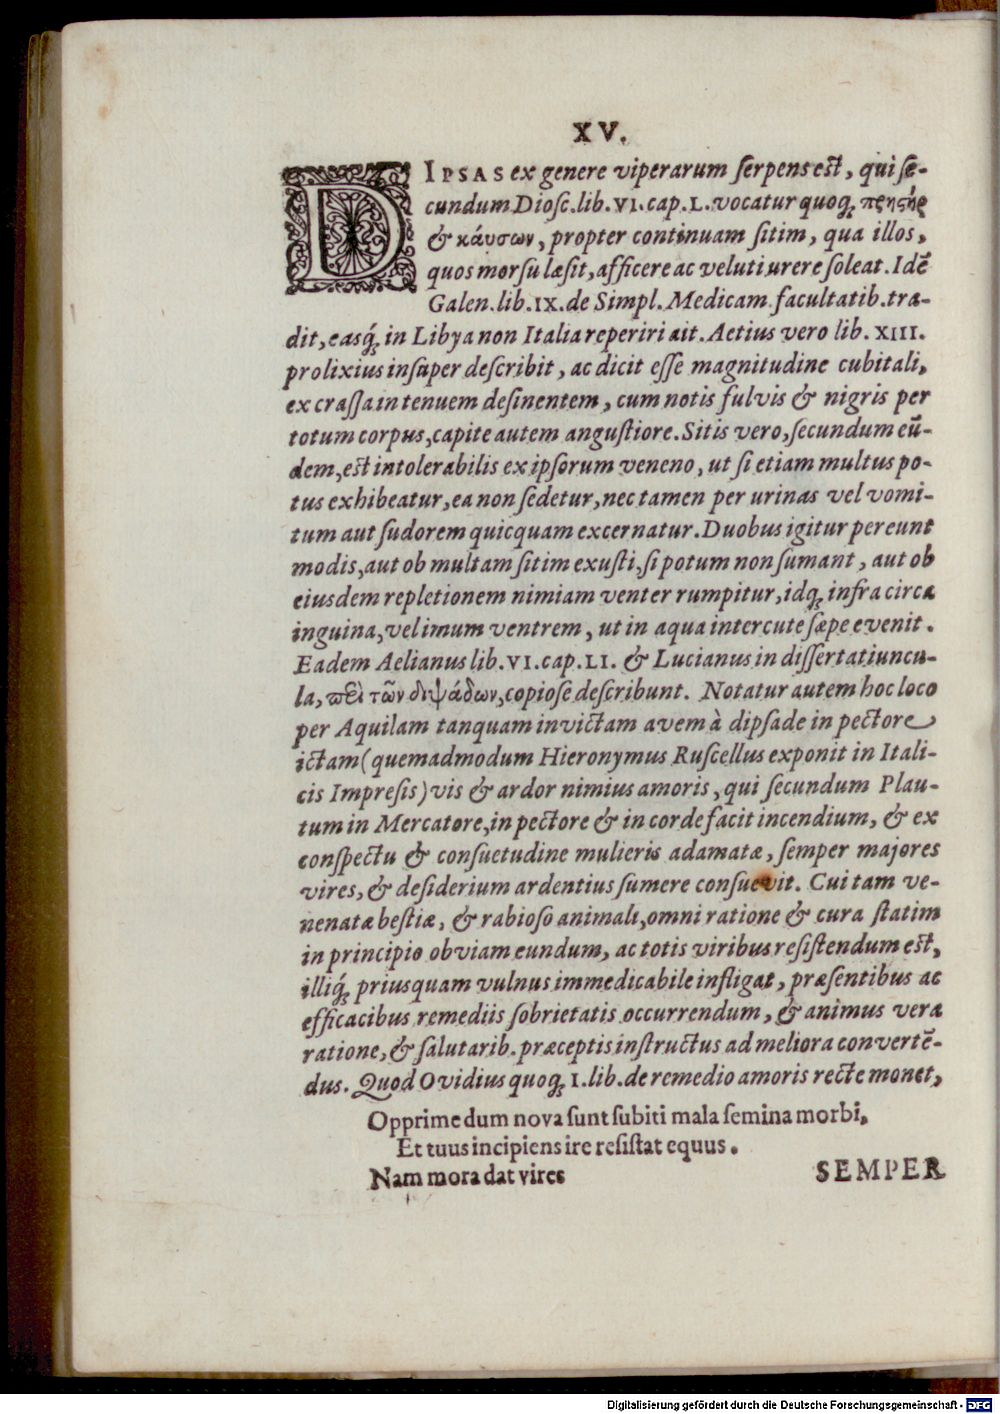 XV.
DIPSAS ex genere viperarum serpens est, qui se-
cundum Diosc. lib. VI. cap. L. vocatur quoqꝫ πρηϛὴρ
& καύσων, propter continuam sitim, qua illos,
quos morsu læsit, afficere ac veluti urere soleat. Idē
Galen. lib. IX. de Simpl. Medicam. facultatib. tra-
dit, easqꝫ́ in Libya non Italia reperiri ait. Aetius vero lib. XIII.
prolixius insuper describit, ac dicit esse magnitudine cubitali,
ex crassa in tenuem desinentem, cum notis fulvis & nigris per
totum corpus, capite autem angustiore. Sitis vero, secundum eū-
dem, est intolerabilis ex ipsorum veneno, ut si etiam multus po-
tus exhibeatur, ea non sedetur, nec tamen per urinas vel vomi-
tum aut sudorem quicquam excernatur. Duobus igitur pereunt
modis, aut ob multam sitim exusti, si potum non sumant, aut ob
eiusdem repletionem nimiam venter rumpitur, idqꝫ infra circa
inguina, vel imum ventrem, ut in aqua intercute sæpe evenit.
Eadem Aelianus lib. VI. cap. LI. & Lucianus in dissertatiuncu-
la, πεὶ τῶν διψάδων, copiose describunt. Notatur autem hoc loco
per Aquilam tanquam invictam avem à dipsade in pectore
ictam (quemadmodum Hieronymus Ruscellus exponit in Itali-
cis Impresis) vis & ardor nimius amoris, qui secundum Plau-
tum in Mercatore, in pectore & in corde facit incendium, & ex
conspectu & consuetudine mulieris adamatæ, semper majores
vires, & desiderium ardentius sumere consuevit. Cui tam ve-
nenatæ bestiæ, & rabioso animali, omni ratione & cura statim
in principio obviam eundum, ac totis viribus resistendum est,
illiqꝫ́ priusquam vulnus immedicabile infligat, præsentibus ac
efficacibus remediis sobrietatis occurrendum, & animus vera
ratione, & salutarib. præceptis instructus ad meliora convertē-
dus. Quod Ovidius quoqꝫ I. lib. de remedio amoris recte monet,
Opprime dum nova sunt subiti mala semina morbi,
Et tuus incipiens ire resistat equus.
Nam mora dat vires SEMPER
Digitalisierung gefördert durch die Deutsche Forschungsgemeinschaft - DFG